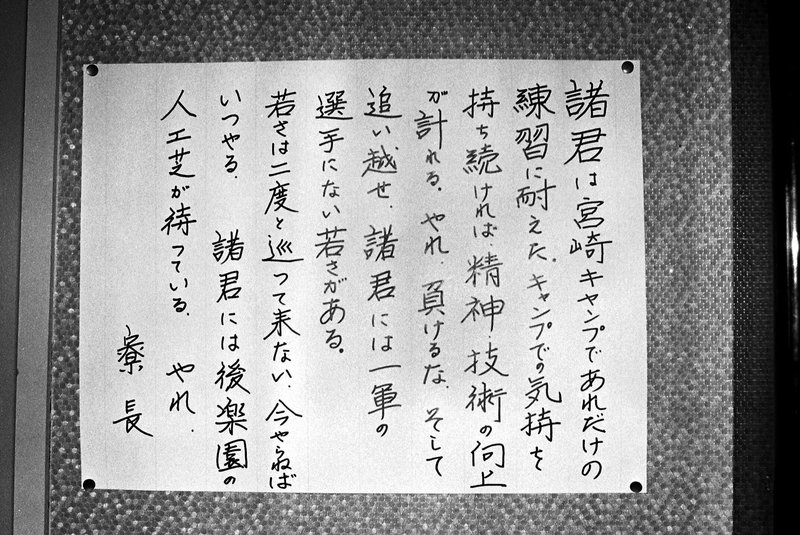 諸君は宮崎キャンプであれだけの
練習に耐えた。キャンプでの気持を
持ち続ければ、精神・技術の向上
が計れる。やれ、負けるな、そして
追い越せ、諸君には一軍の
選手にない若さがある。
若さは二度と巡って来ない、今やらねば
いつやる、諸君には後楽園の
人工芝が待っている、やれ、
寮長